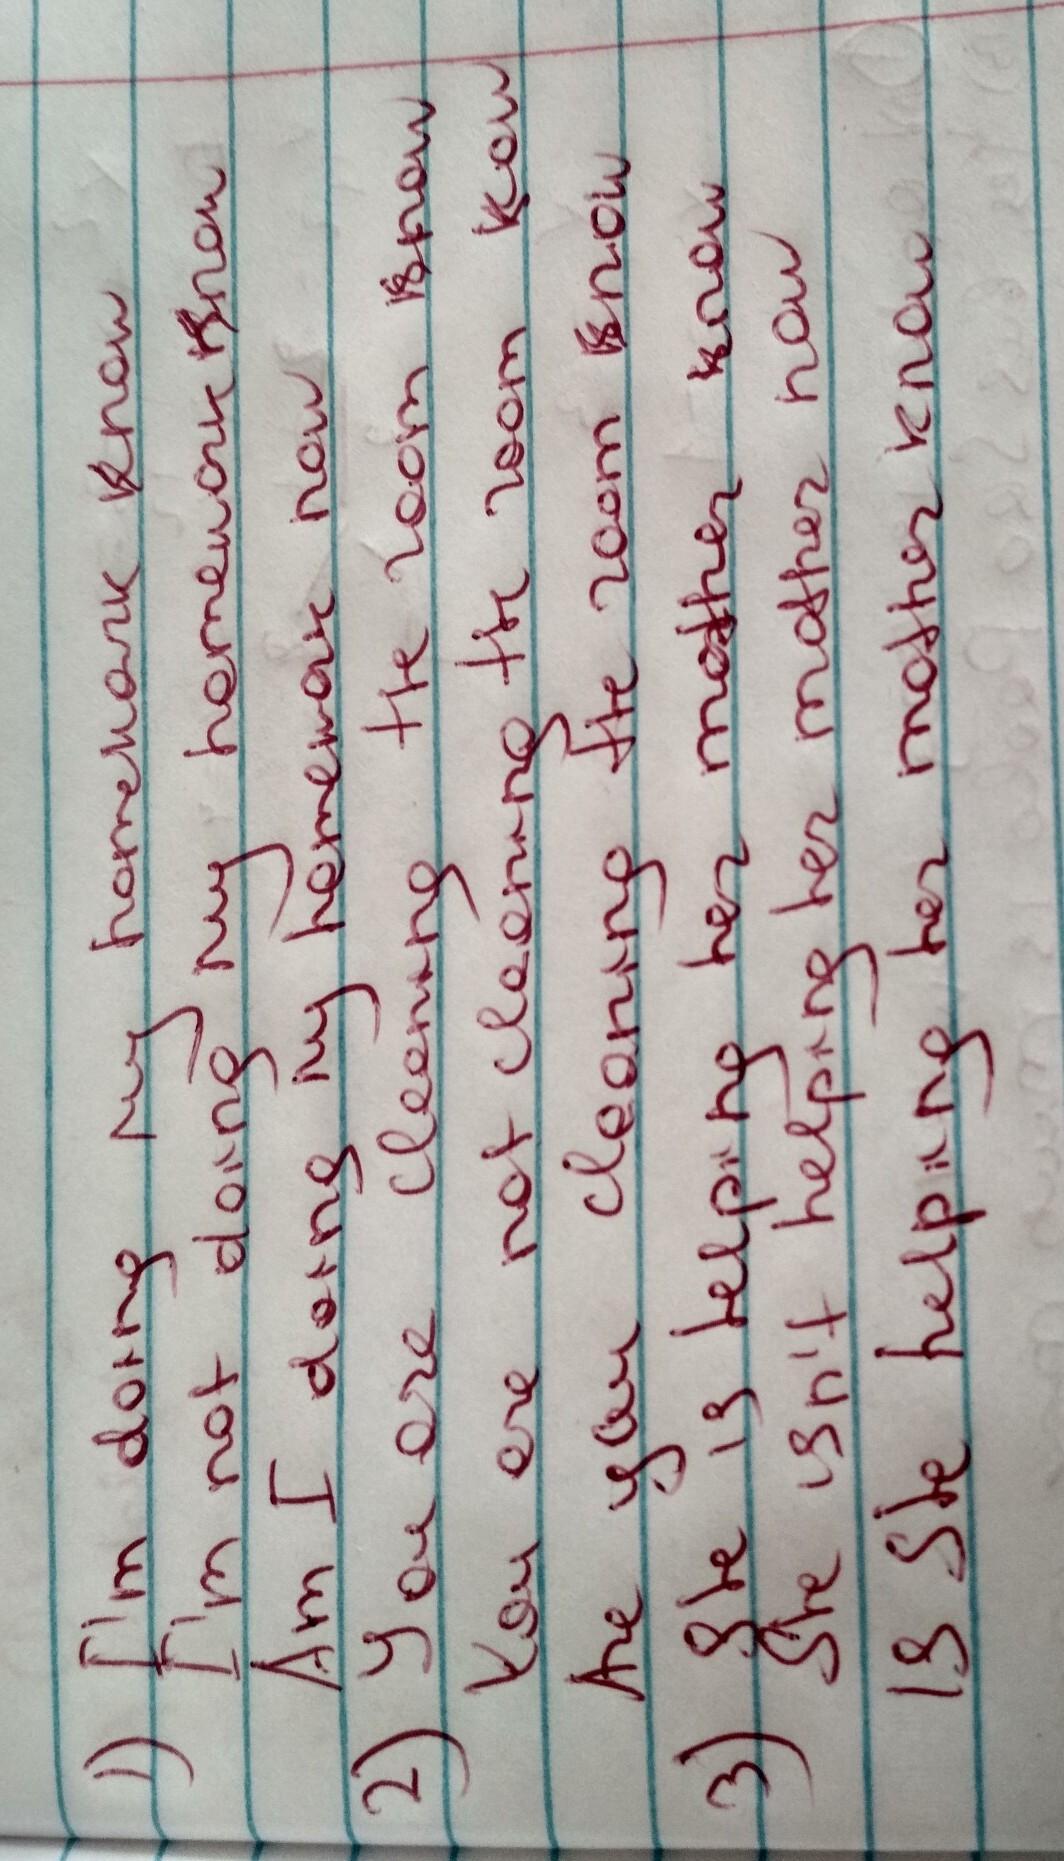 1) I'm doing my homework know
I'm not doing my homework know
Am I doing my homework now
2) You are cleening the room know
You are not cleening the room kow
Are you cleaning the room know
3) She is helping her mother know
She isn't helping her mother now
Is She helping her mother know